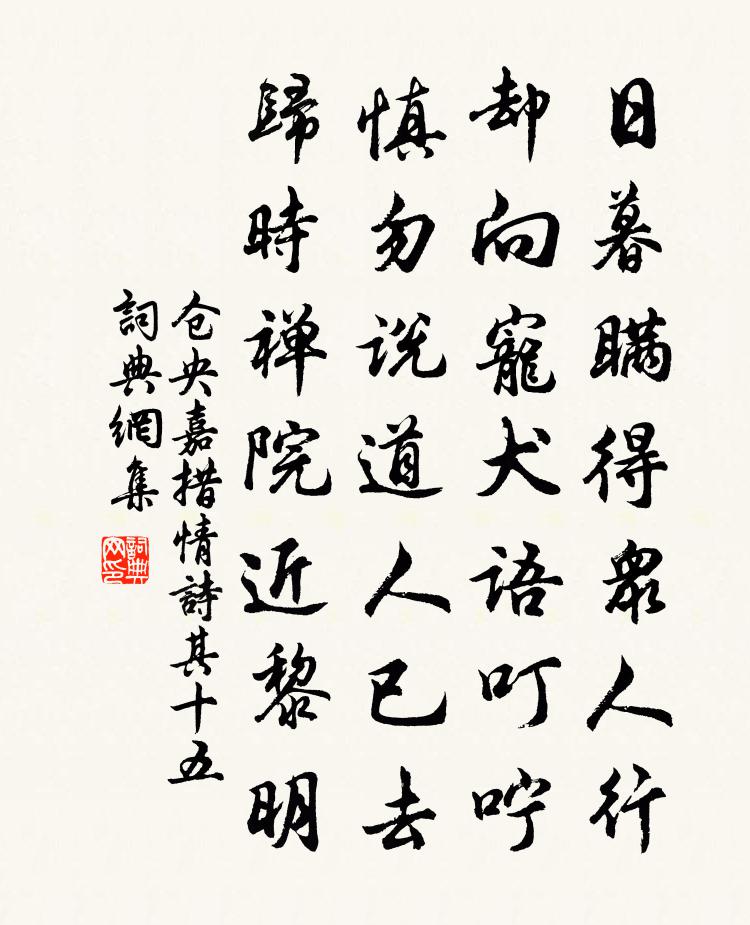 日暮瞞得衆人行
却向寵犬語叮咛
慎勿说道人已去
歸時禅院近黎明
仓央嘉措情詩其十五
詞典網集
詞典
网印